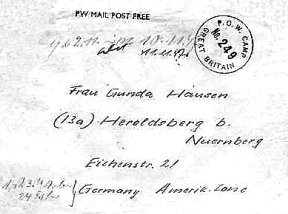 PW MAIL POST FREE
P.O.W. CAMP
No. 249
GREAT BRITAIN
Frau Gunda Hausen
(13a) Heroldsberg b.
Nuernberg
Eichenstr. 21
Germany Amerik. Zone